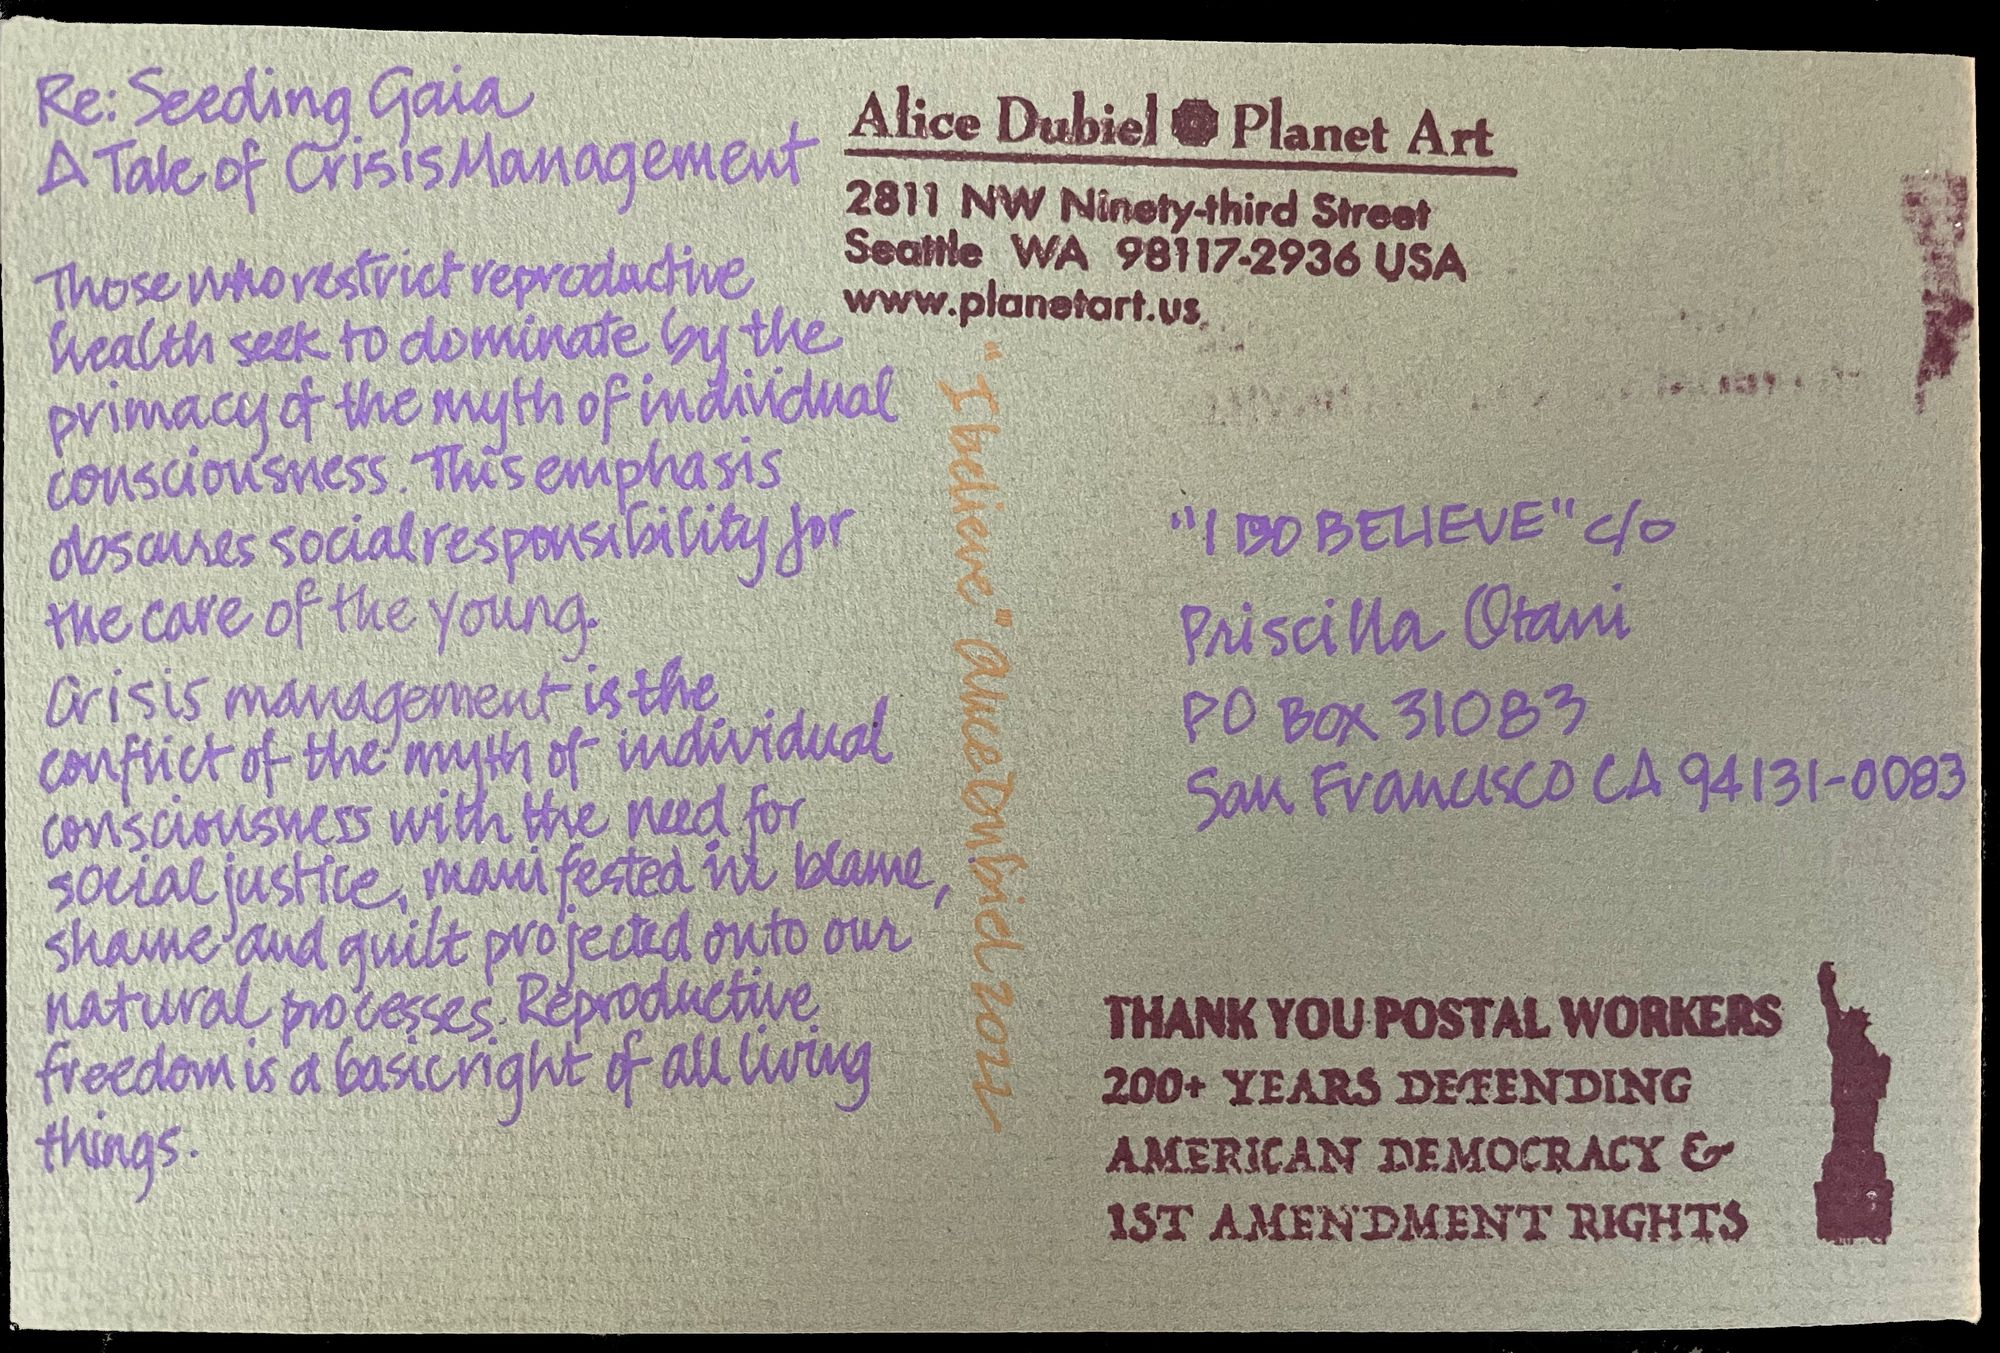 Re: Seeding Gaia
A Tale of Crisis Management
Those who restrict reproductive
health seek to dominate by the
primacy of the myth of individual
consciousness. This emphasis
obscures social responsibility for
the care of the young.
Crisis management is the
conflict of the myth of individual
consciousness with the need for
social justice, manifested in blame,
shame and guilt projected onto our
natural processes. Reproductive
freedom is a basic right of all living
things.
"I believe" Alice Dubiel 2022
Alice Dubiel Planet Art
2811 NW Ninety-third Street
Seattle WA 98117-2936 USA
www.planetart.us
"I DO BELIEVE" c/o
Priscilla Otani
PO Box 31083
San Francisco CA 94131-0083
THANK YOU POSTAL WORKERS
200+ YEARS DEFENDING
AMERICAN DEMOCRACY &
1ST AMENDMENT RIGHTS